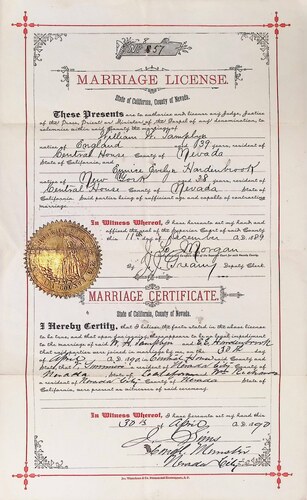 No 857
MARRIAGE LICENSE.
State of California, County of Nevada.
These Presents are to authorize and license any Judge, Justice
of the Peace, Priest or Minister of the Gospel of any denomination, to
solemnize within said County the marriage of
William H.
native of England aged 39 years, resident of
Central House County of Nevada
State of California, and Eunice Evelyn Hardenbrook
native of New York aged 38 years, resident of
Central House County of Nevada State of
California. Said parties being of sufficient age and capable of contracting
marriage.
In Witness Whereof, I have hereunto set my hand and
affixed the seal of the Superior Court of said County
this 11th day of December A.D. 189
J. L. Morgan
Deputy Clerk.
MARRIAGE CERTIFICATE.
State of California, County of Nevada.
I Hereby Certify, that I believe the facts stated in the above license
to be true, and that upon due inquiry there appears to be no legal impediment
to the marriage of said W. H. and E. E. Hardenbrook
that said parties were joined by me on the 30 day
of April A.D. 1890 in Central House said County and
State; that a resident of Nevada City County of
Nevada State of California and
a resident of Nevada City County of Nevada State of
California, were present as witnesses of said ceremony.
In Witness Whereof, I have hereunto set my hand this
30th day of April A.D. 1890
J. Sims
Minister
Nevada City